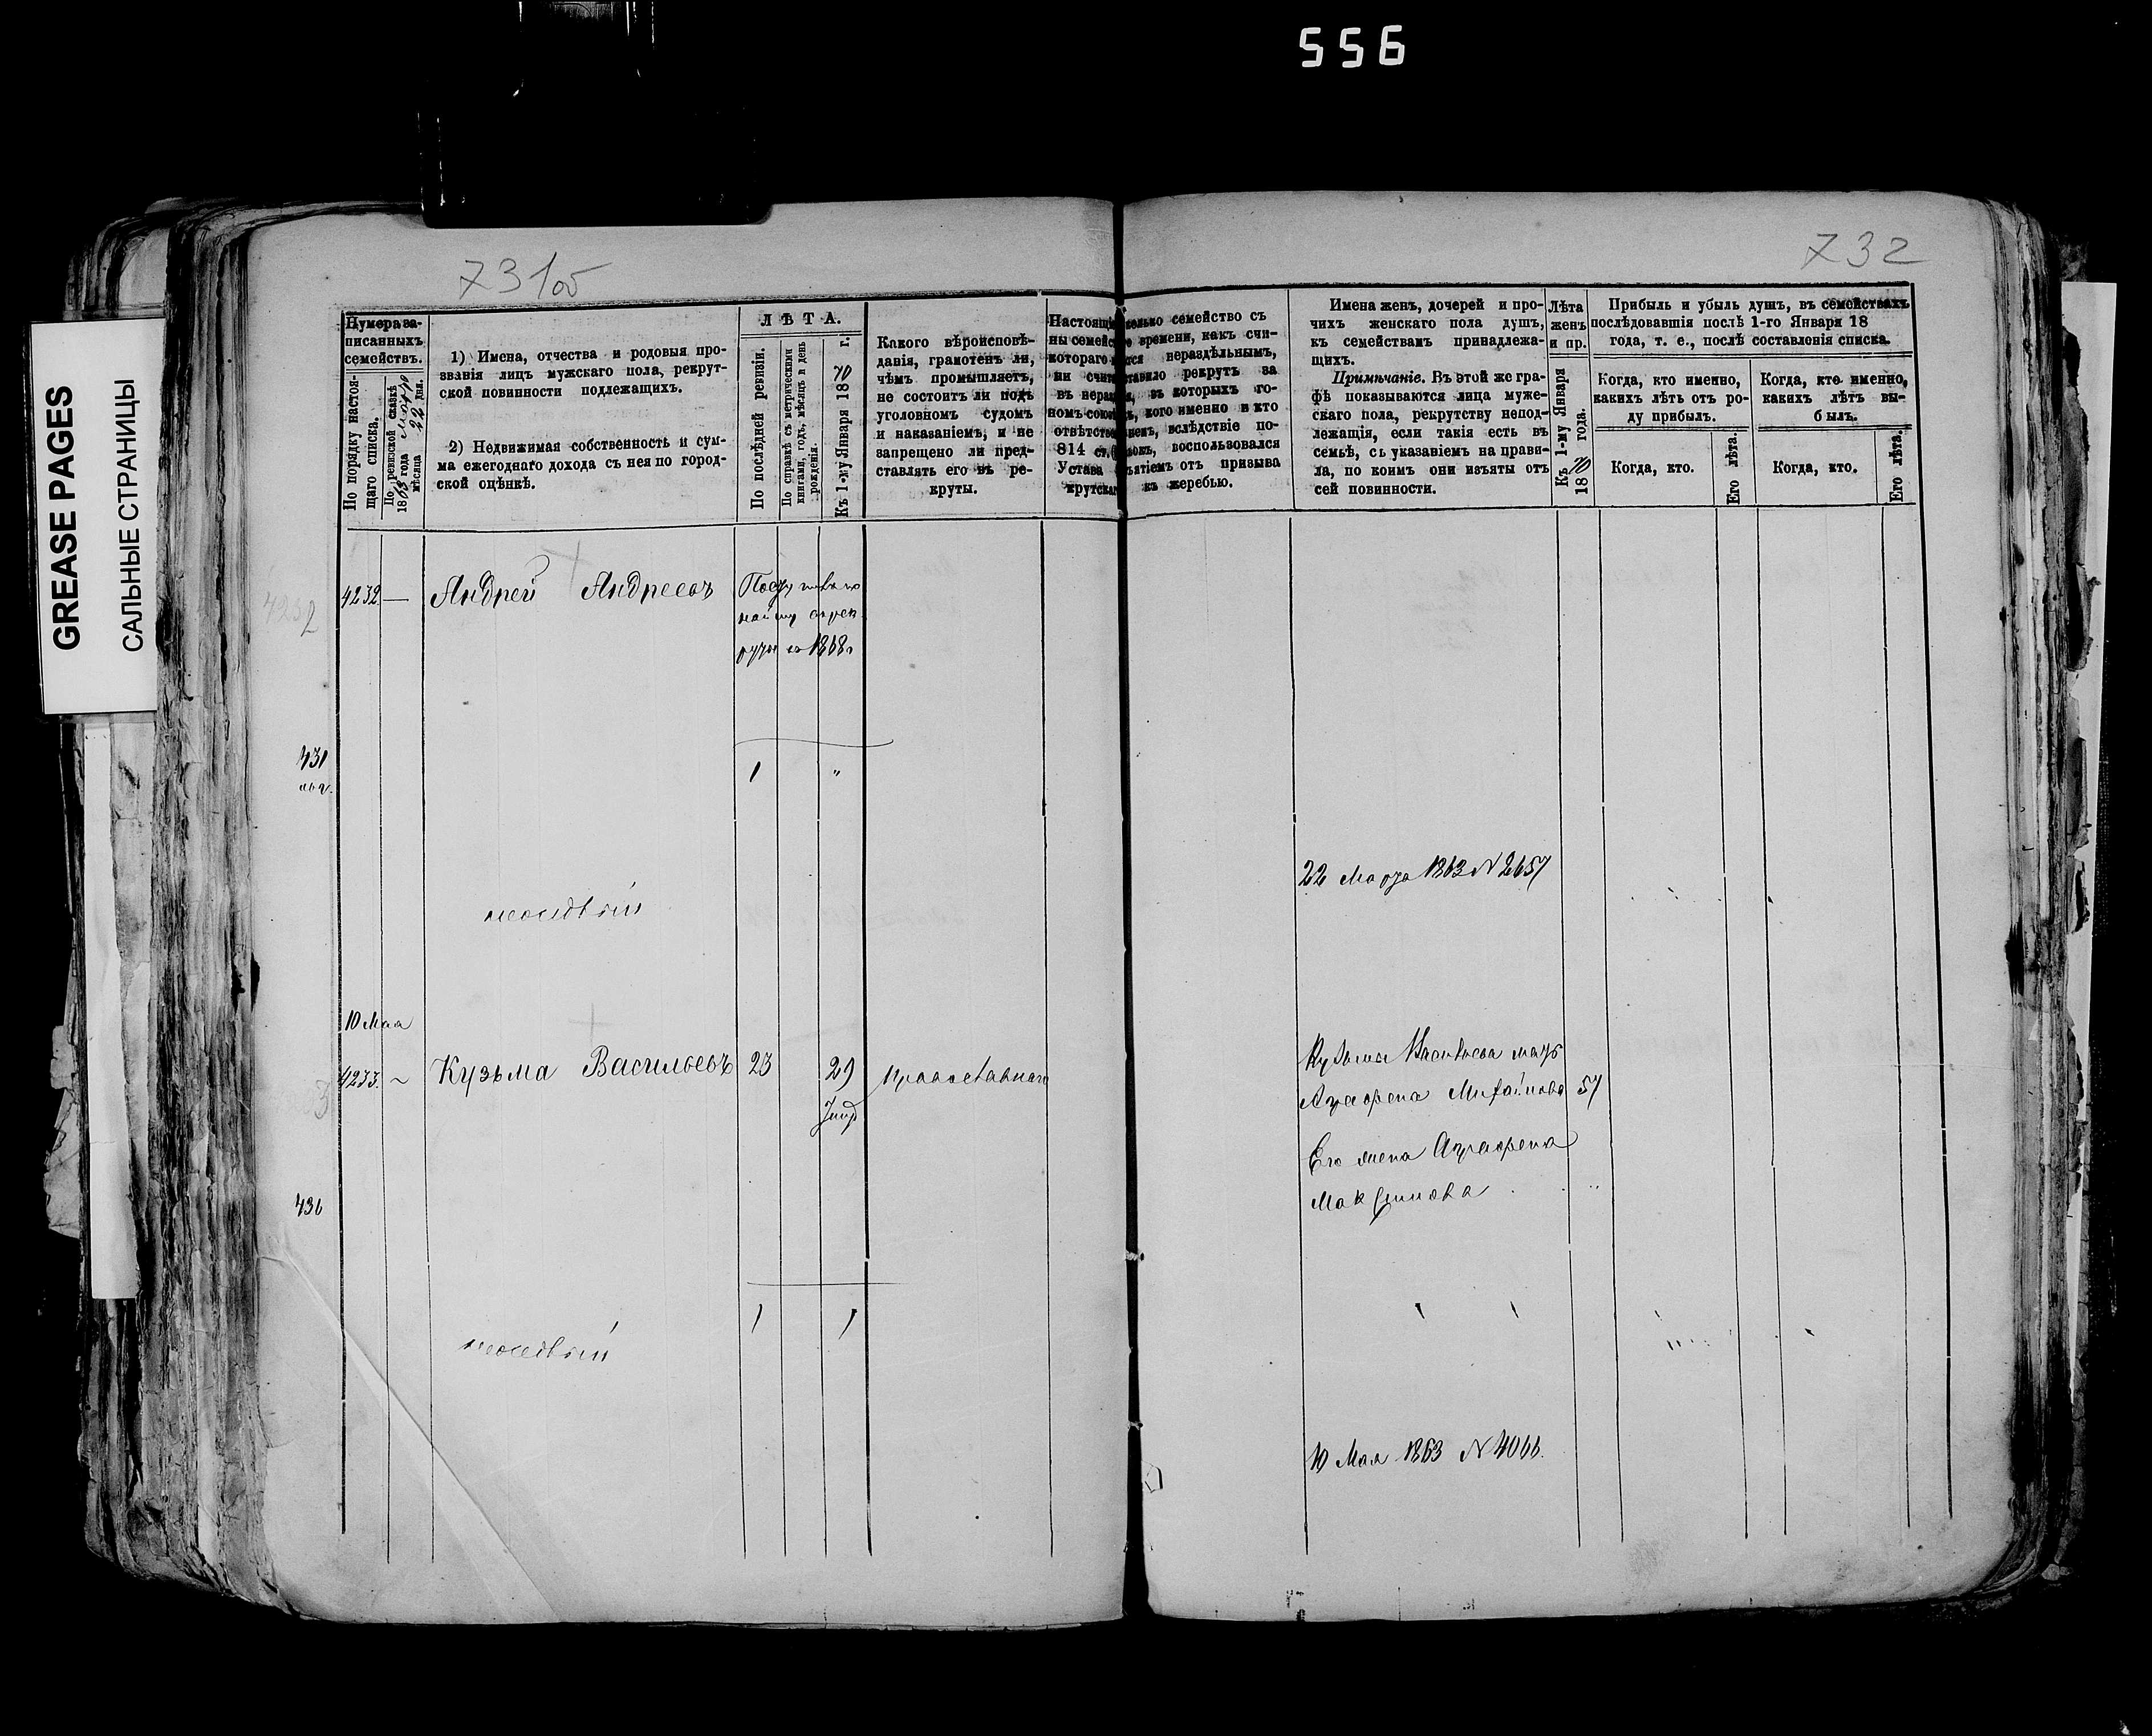 556
GREASE PAGES
САЛЬНЫЕ СТРАНИЦЫ
731об
732
Нумера за-
писанныхъ
семействъ.
По порядку настоя-
щаго списка.
По ревизской сказкѣ
1863 года Марта
мѣсяца 22 дня.
1) Имена, отчества и родовыя про-
званія лицъ мужскаго пола, рекрут-
ской повинности подлежащихъ.
2) Недвижимая собственность и сум-
ма ежегоднаго дохода съ нея по город-
ской оцѣнкѣ.
ЛѢТА.
По послѣдней ревизіи.
По справкѣ съ метрическими
книгами, годъ, мѣсяцъ и день
рожденія.
Къ 1-му Января 1870 г.
Какого вѣроисповѣ-
данія, грамотенъ ли,
чѣмъ промышляетъ,
не состоитъ ли подъ
уголовномъ судомъ
и наказаніемъ, и не
запрещено ли пред-
ставлять его въ ре-
круты.
семейство съ
времени, какъ счи-
котораго нераздѣльнымъ,
рекрутъ за
въ которыхъ го-
кого именно и кто
вслѣдствіе по-
814 ст. воспользовался
Устава отъ призыва
къ жеребью.
Имена женъ, дочерей и про-
чихъ женскаго пола душъ,
къ семействамъ принадлежа-
щихъ.
Примѣчаніе. Въ этой же гра-
фѣ показываются лица муже-
скаго пола, рекрутству непод-
лежащія, если такія есть въ
семьѣ, съ указаніемъ на прави-
ла, по коимъ они изъяты отъ
сей повинности.
Лѣта
женъ
и пр.
Къ 1-му Января
1870 года.
Прибыль и убыль душъ, въ семействахъ
послѣдовавшія послѣ 1-го Января 18
года, т. е., послѣ составленія списка.
Когда, кто именно,
какихъ лѣтъ отъ ро-
ду прибылъ.
Когда, кто именно,
какихъ лѣтъ вы-
былъ.
Когда, кто.
Его лѣта.
Когда, кто.
Его лѣта.
4232 — Андрей Андреевъ
1868
431
1 "
22 Марта 1863 N 2657
10 Мая
4233 ~ Кузьма Васильевъ 23 29 православнаго
Кузьмы Васильева мать
Аграфена 57
Его жена Аграфена
Максимова
436
1 1
10 Мая 1863 N 4066.